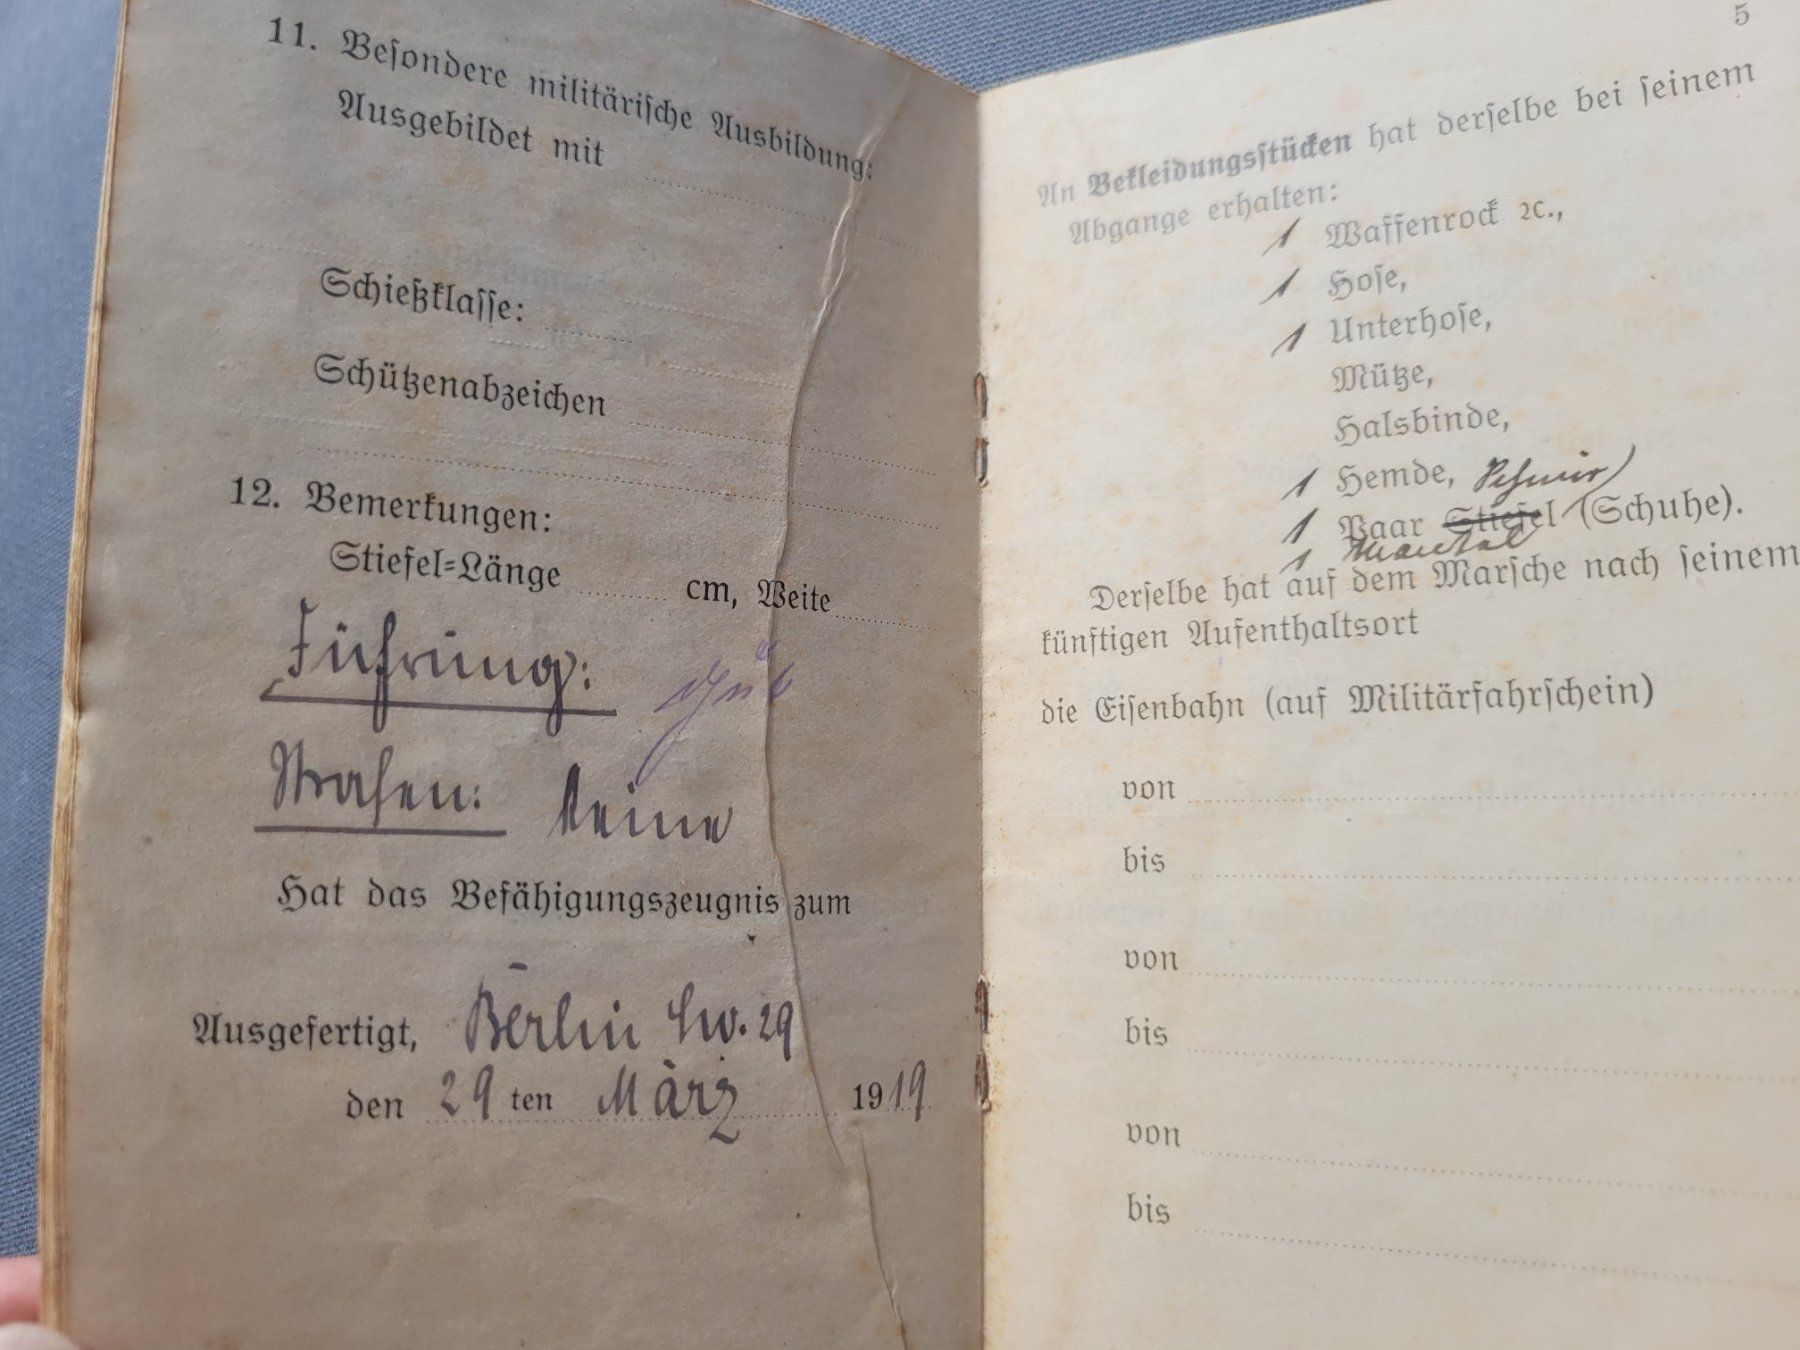 11. Beſondere militäriſche Ausbildung:
Ausgebildet mit
Schießklaſſe:
Schützenabzeichen
12. Bemerkungen:
Stiefel-Länge cm, Weite
Führung: gut
Strafen: Keine
Hat das Befähigungszeugnis zum
Ausgefertigt, Berlin Sw. 29
den 29 ten März 1919
5
An Bekleidungsſtücken hat derſelbe bei ſeinem
Abgange erhalten:
1 Waffenrock ꝛc.,
1 Hoſe,
1 Unterhoſe,
Mütze,
Halsbinde,
1 Hemde,
1 Paar Stiefel (Schuhe).
1 Mantel
Derſelbe hat auf dem Marſche nach ſeinem
künftigen Aufenthaltsort
die Eiſenbahn (auf Militärfahrſchein)
von
bis
von
bis
von
bis